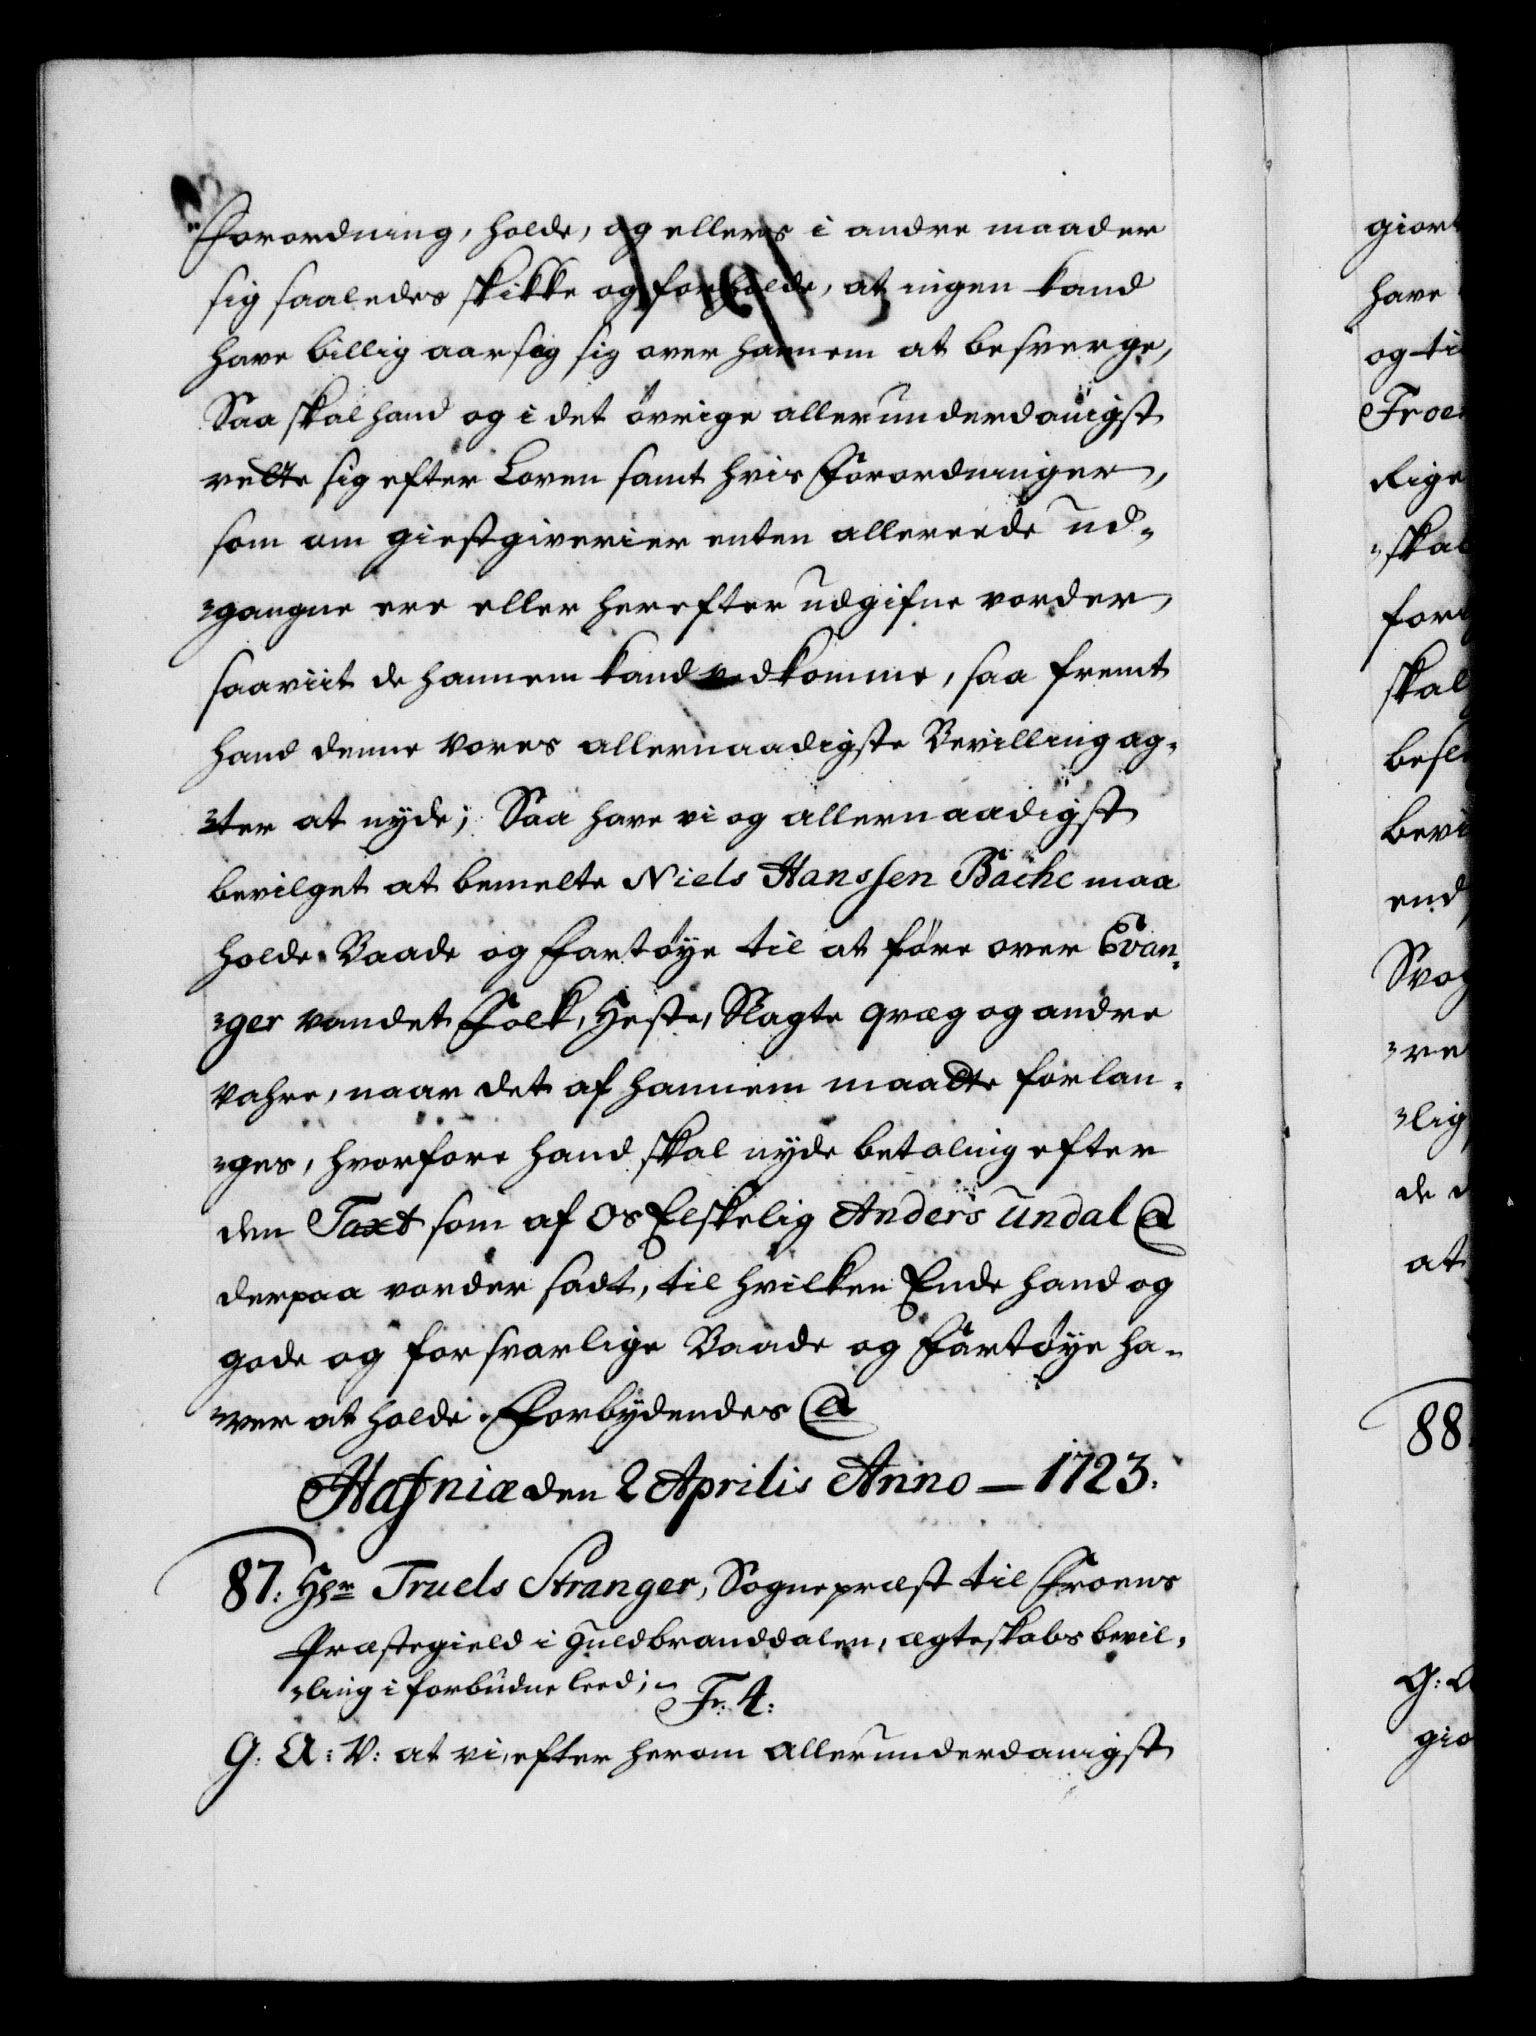 Forordning, holde, og ellers i andre maader
sig saaledes skikke og forholde, at ingen kand
have billig aarsag sig over hannem at besverge,
Saa skal hand og i det övrige allerunderdanigst
rette sig efter Loven samt hvis Forordninger,
som om giestgiverier enten allereede ud-
-gangne ere eller herefter udgifne vorder,
saaviit de hannem kand vedkomme, saa fremt
hand denne Vores allernaadigste Bevilling ag-
-ter at nyde; Saa have vi og allernaadigst
bevilget at bemelte Niels Hanssen Bache maa
holde Baade og Fartöye til at före over Evan-
-ger vandet Folk, Heste, Slagte qvæg og andre
Vahre, naar det af hannem maatte forlan-
-ges, hvorfore hand skal nyde betaling efter
den Taxt som af Os Elskelig Anders Undal @
derpaa vorder sadt, til hvilken Ende hand og
gode og forsvarlige Baade og Fartöye ha-
-ver at holde. Forbydendes @
Hafniæ den 2 Aprilis Anno - 1723.
87. Hr Truels Stranger, Sognepræst til Froens
Præstegield i Guldbranddalen, ægteskabs bevil-
-ling i forbudne leed; Fr. 4:
G: A: V: at vi, efter herom allerunderdanigst
giort
have
og ti
Froe
Rige
skal
for
skal
besl
bevi
end
Svog
-re
-lig
de
at
88
G: A
gio